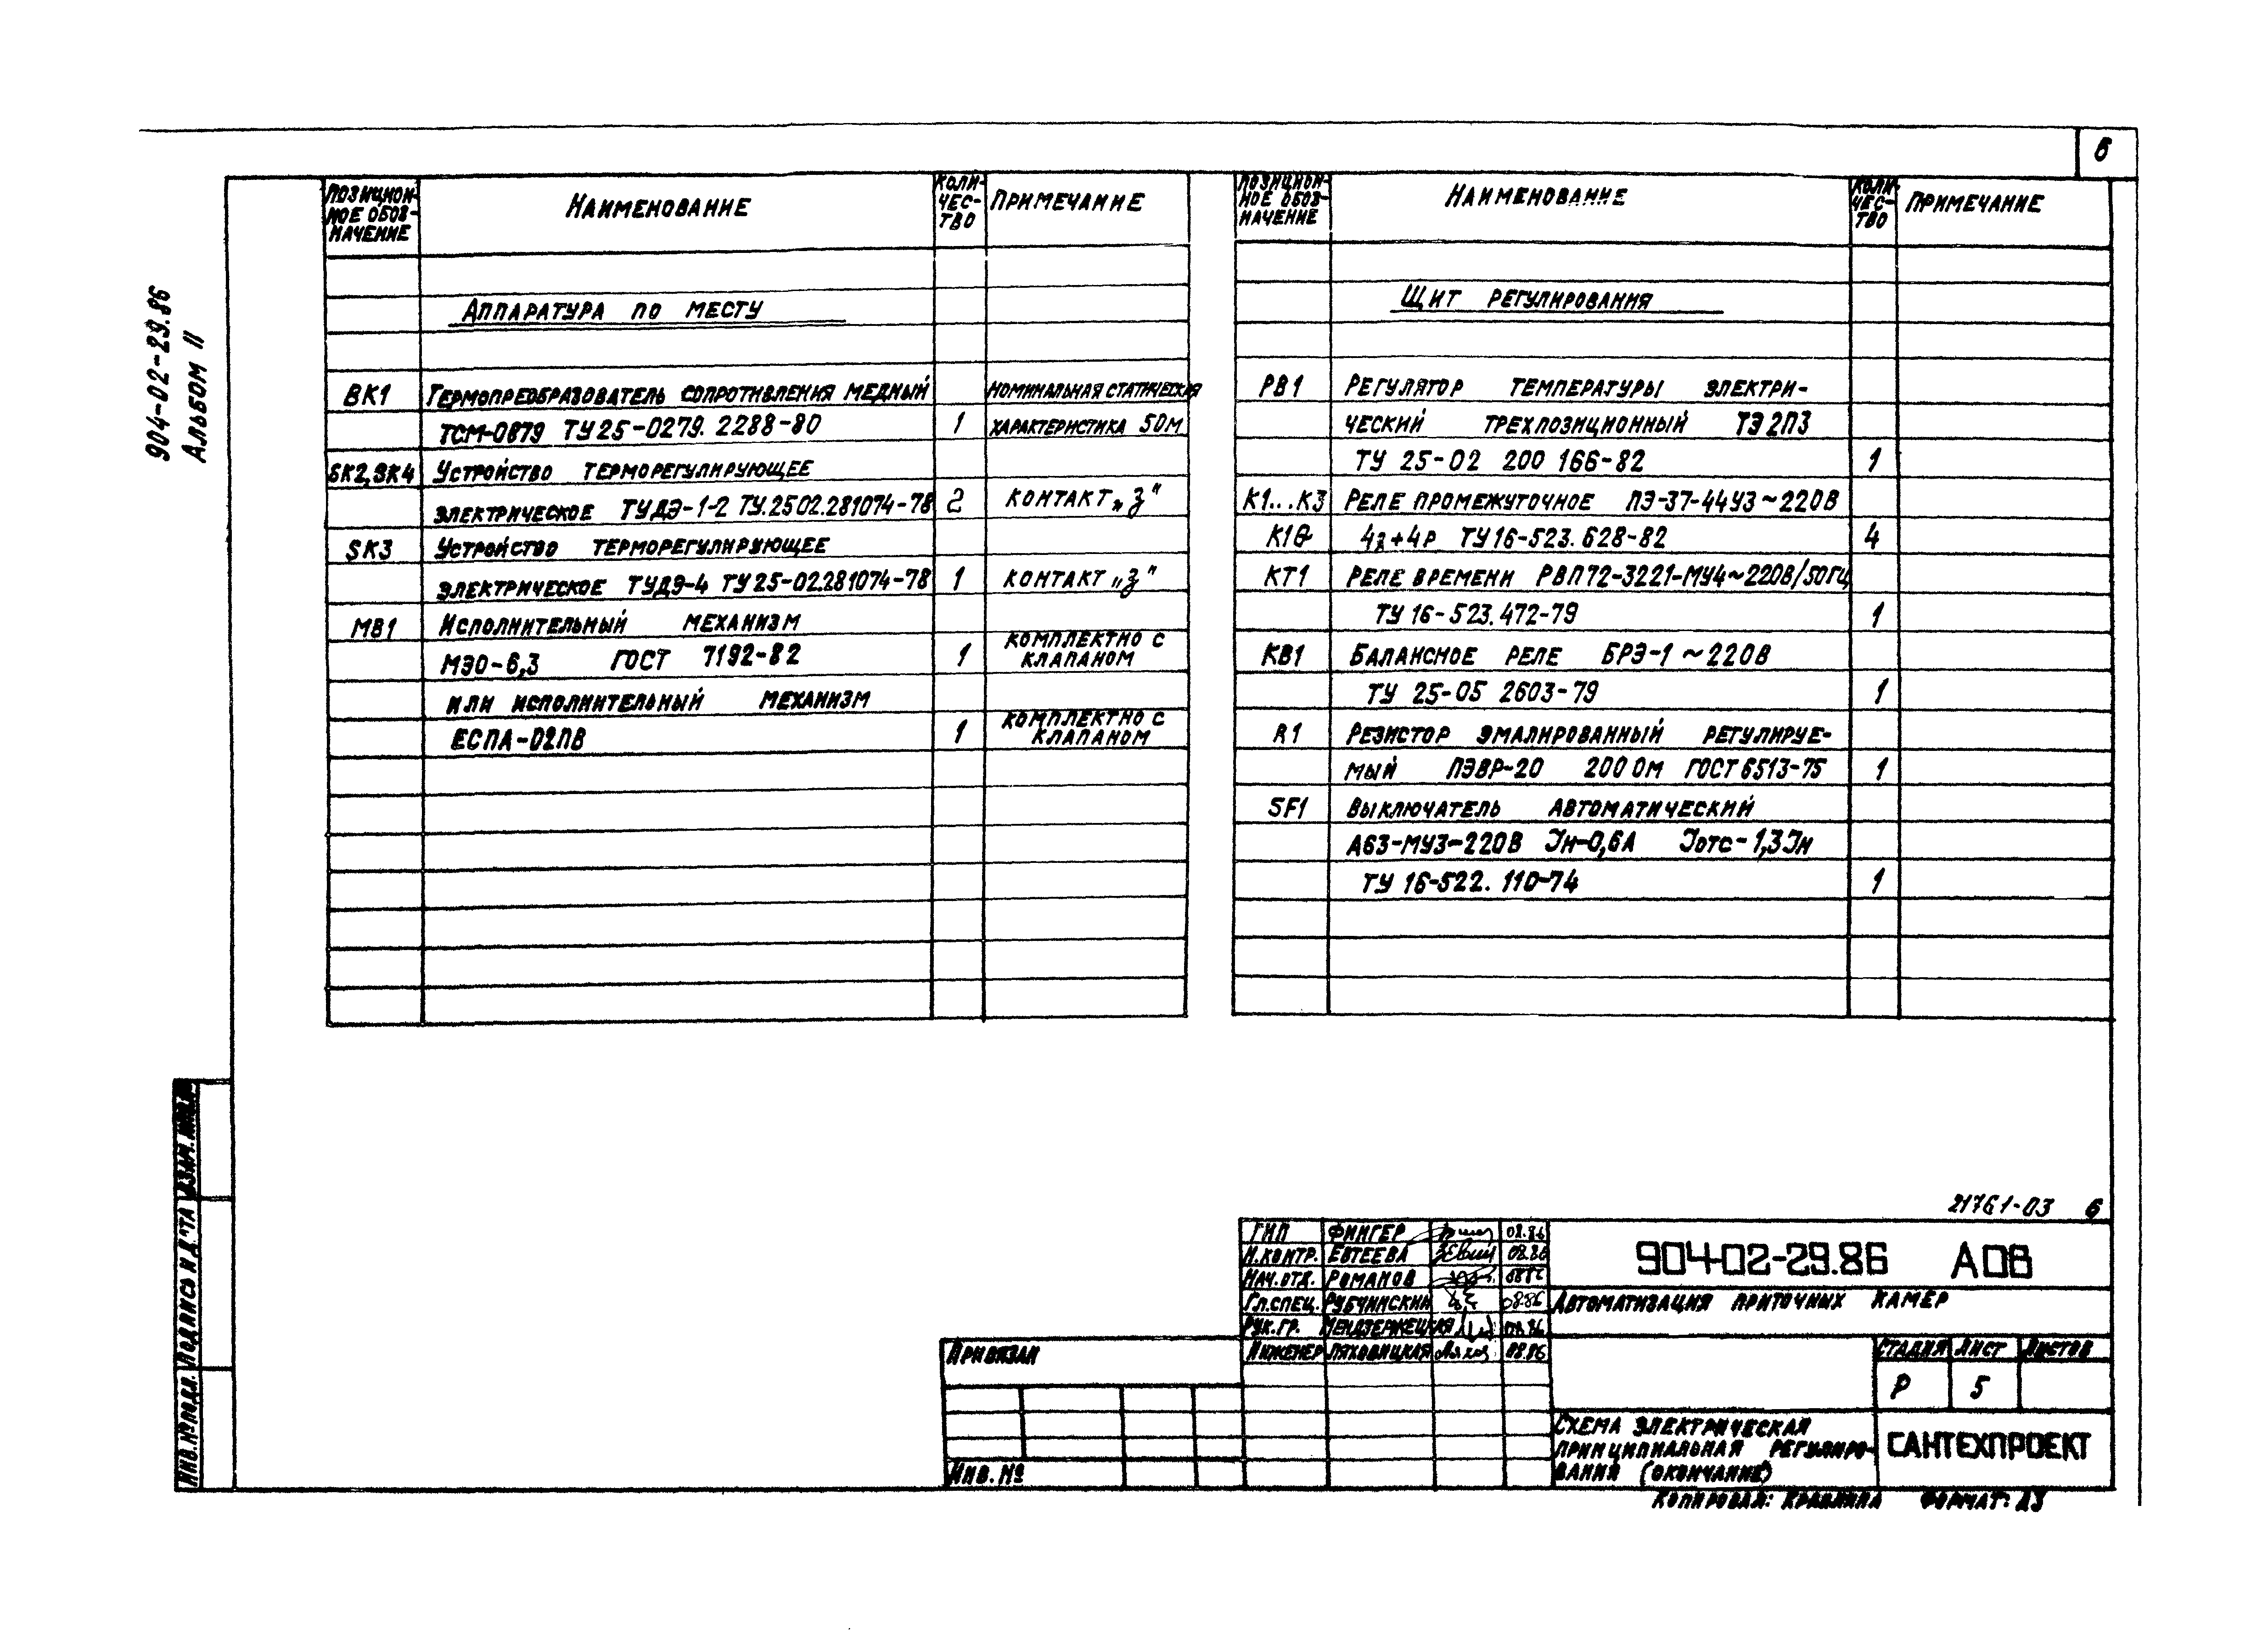 6
904-02-29.86
Альбом II
Позицион-
ное обоз-
начение
Наименование
Коли-
чес-
тво
Примечание
Аппаратура по месту
ВК1 Термопреобразователь сопротивления медный номинальная статическая
ТСМ-0879 ТУ25-0279.2288-80 1 характеристика 50м
SK2, SK4 Устройство терморегулирующее
электрическое ТУДЭ-1-2 ТУ.2502.281074-78 2 контакт „З"
SK3 Устройство терморегулирующее
электрическое ТУДЭ-4 ТУ25-02.281074-78 1 контакт „З"
МВ1 Исполнительный механизм
МЭО-6,3 ГОСТ 7192-82 1 комплектно с
клапаном
или исполнительный механизм
ЕСПА-02ПВ 1 комплектно с
клапаном
Позицион-
ное обоз-
начение
Наименование
Коли-
чес-
тво
Примечание
Щит регулирования
РВ1 Регулятор температуры электри-
ческий трехпозиционный ТЭ2П3
ТУ 25-02 200 166-82 1
К1...К3 Реле промежуточное ПЭ-37-44У3~220В
К10 4з+4р ТУ16-523.628-82 4
КТ1 Реле времени РВП72-3221-МУ4~220В/50Гц
ТУ 16-523.472-79 1
КВ1 Балансное реле БРЭ-1 ~220В
ТУ 25-05 2603-79 1
R1 Резистор эмалированный регулируе-
мый ПЭВР-20 200 Ом ГОСТ 6513-75 1
SF1 Выключатель автоматический
А63-МУ3-220В Jн-0,6А Jотс-1,3Jн
ТУ 16-522.110-74 1
Взам. инв.№
Подпись и дата
Инв.№ подл.
21761-03 6
ГИП Фингер 08.86
Н.контр. Евтеева 08.86
Нач.отд. Романов 08.86
Гл.спец. Рубчинский 08.86
Рук.гр. 08.86
Инженер Ляховицкая 08.86
904-02-29.86 АОВ
Автоматизация приточных камер
Привязан
Инв.№
Стадия Лист Листов
Р 5
Схема электрическая
принципиальная регулиро-
вания (окончание)
САНТЕХПРОЕКТ
Копировал: Формат: А3